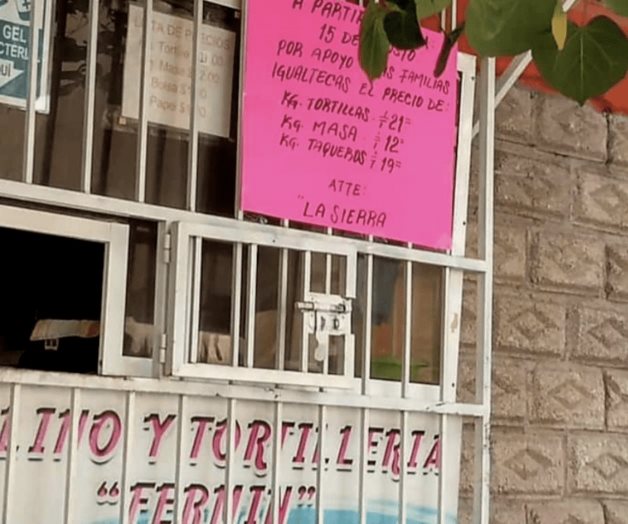 GEL
AQUÍ
LISTA DE PRECIOS
1 Tortilla
1 Masa
Bolsa
Papel
A PARTIR
15 DE AGOSTO
POR APOYO FAMILIAS
IGUALTECAS EL PRECIO DE:
KG. TORTILLAS $ 21=
KG. MASA $ 12=
KG. TAQUEROS $ 19=
ATTE:
"LA SIERRA
LINO Y TORTILLERIA
"FERMIN"